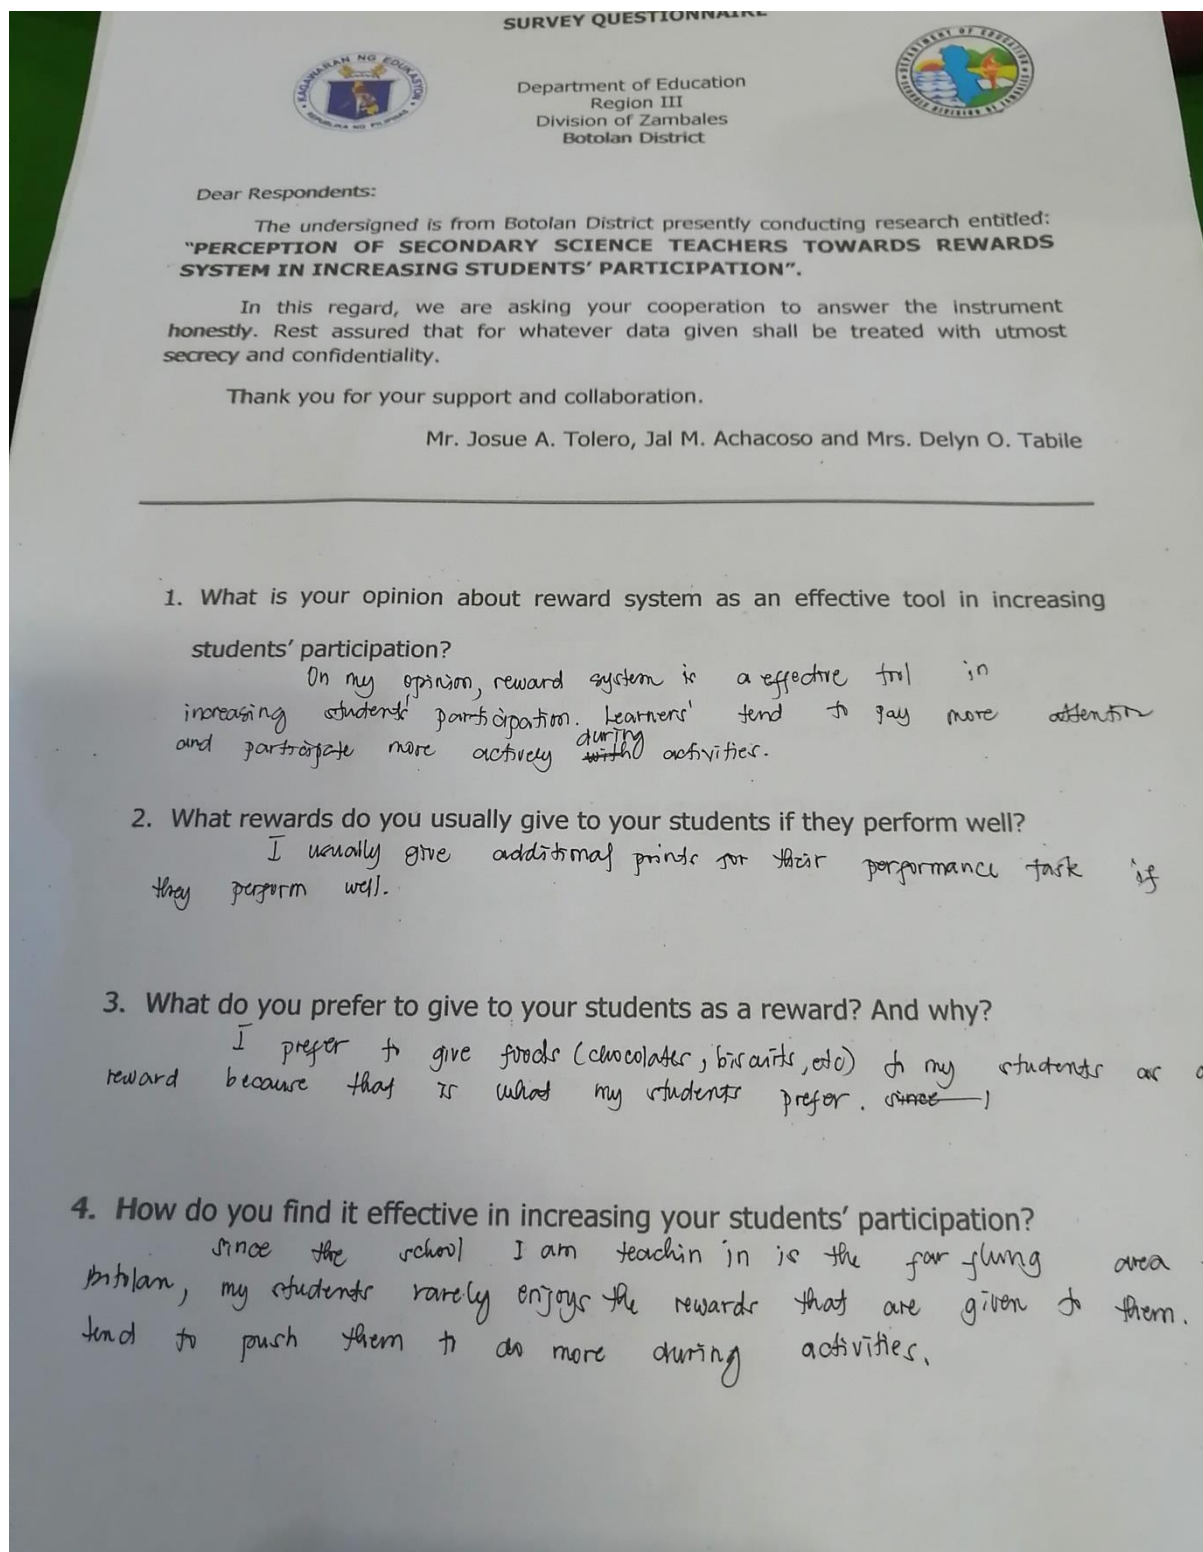 SURVEY QUESTIONNAIRE
KAGAWARAN NG EDUKASYON
REPUBLIKA NG PILIPINAS
DEPARTMENT OF EDUCATION
SCHOOLS DIVISION OF ZAMBALES
Department of Education
Region III
Division of Zambales
Botolan District
Dear Respondents:
The undersigned is from Botolan District presently conducting research entitled:
"PERCEPTION OF SECONDARY SCIENCE TEACHERS TOWARDS REWARDS
SYSTEM IN INCREASING STUDENTS' PARTICIPATION".
In this regard, we are asking your cooperation to answer the instrument
honestly. Rest assured that for whatever data given shall be treated with utmost
secrecy and confidentiality.
Thank you for your support and collaboration.
Mr. Josue A. Tolero, Jal M. Achacoso and Mrs. Delyn O. Tabile
1. What is your opinion about reward system as an effective tool in increasing
students' participation?
On my opinion, reward system is a effective tool in
increasing students' participation. Learners' tend to pay more attention
and participate more actively with during activities.
2. What rewards do you usually give to your students if they perform well?
I usually give additional points for their performance task if
they perform well.
3. What do you prefer to give to your students as a reward? And why?
I prefer to give foods (chocolates, biscuits, etc) to my students as a
reward because that is what my students prefer. since
4. How do you find it effective in increasing your students' participation?
Since the school I am teachin in is the far flung area
Botolan, my students rarely enjoys the rewards that are given to them.
tend to push them to do more during activities.